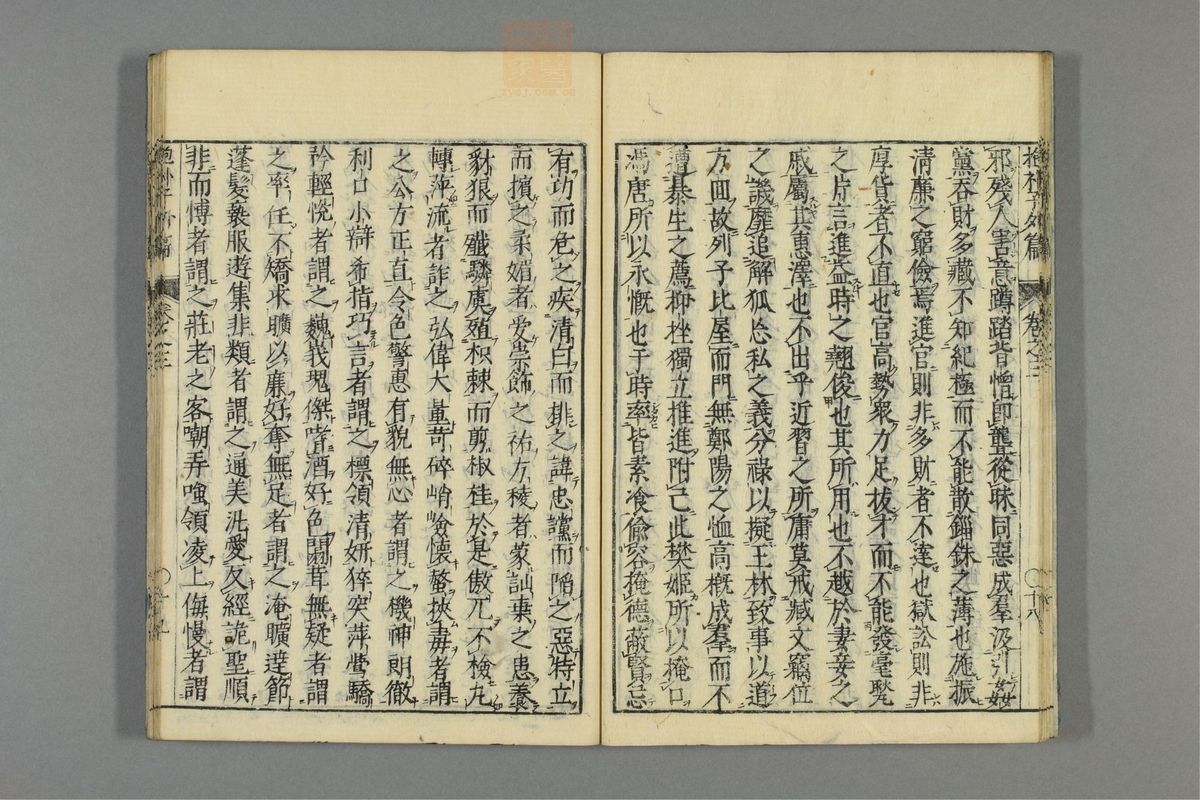 抱朴子外篇　卷之三　○十八
邪殘人害意蹲踏皆憎即聾從昧同惡成羣汲引姦
黨吞財多藏不知紀極而不能散錙銖之薄也施振
清廉之窮儉焉進官則非多財者不達也獄訟則非
厚貨者不直也官高勢衆力足拔才而不能發毫釐
之片言進益時之翹俊也其所用也不越於妻妾之
戚屬其惠澤也不出乎近習之所庸莫戒臧文竊位
之譏靡追解狐忘私之義分祿以擬王林致事以道
方回故列子比屋而門無鄭陽之恤高槪成羣而不
遭暴生之薦抑挫獨立推進附己此樊姬所以掩口
馮唐所以永慨也于時率皆素飡偷容掩德蔽賢忌
有功而危之疾清白而排之諱忠讜而陷之惡特立
而擯之柔媚者受崇飾之祐方稜者蒙訕棄之患養
豺狼而殲驎虞殖枳棘而剪椒桂於是傲兀不檢丸
轉萍流者謂之弘偉大量苛碎峭嶮懷螫挾毒者謂
之公方正直令色警惠有貌無心者謂之機神朗徹
利口小辯希指巧言者謂之標領清妍猝突萍鸎驕
矜輕侻者謂之巍峩瑰傑嗜酒好色闒茸無疑者謂
之率任不矯求曠以廉好奪無足者謂之淹曠遠節
蓬髮褻服遊集非類者謂之通美汎愛反經詭聖順
非而博者謂之莊老之客嘲弄嗤領凌上侮慢者謂
抱朴子外篇　卷之三